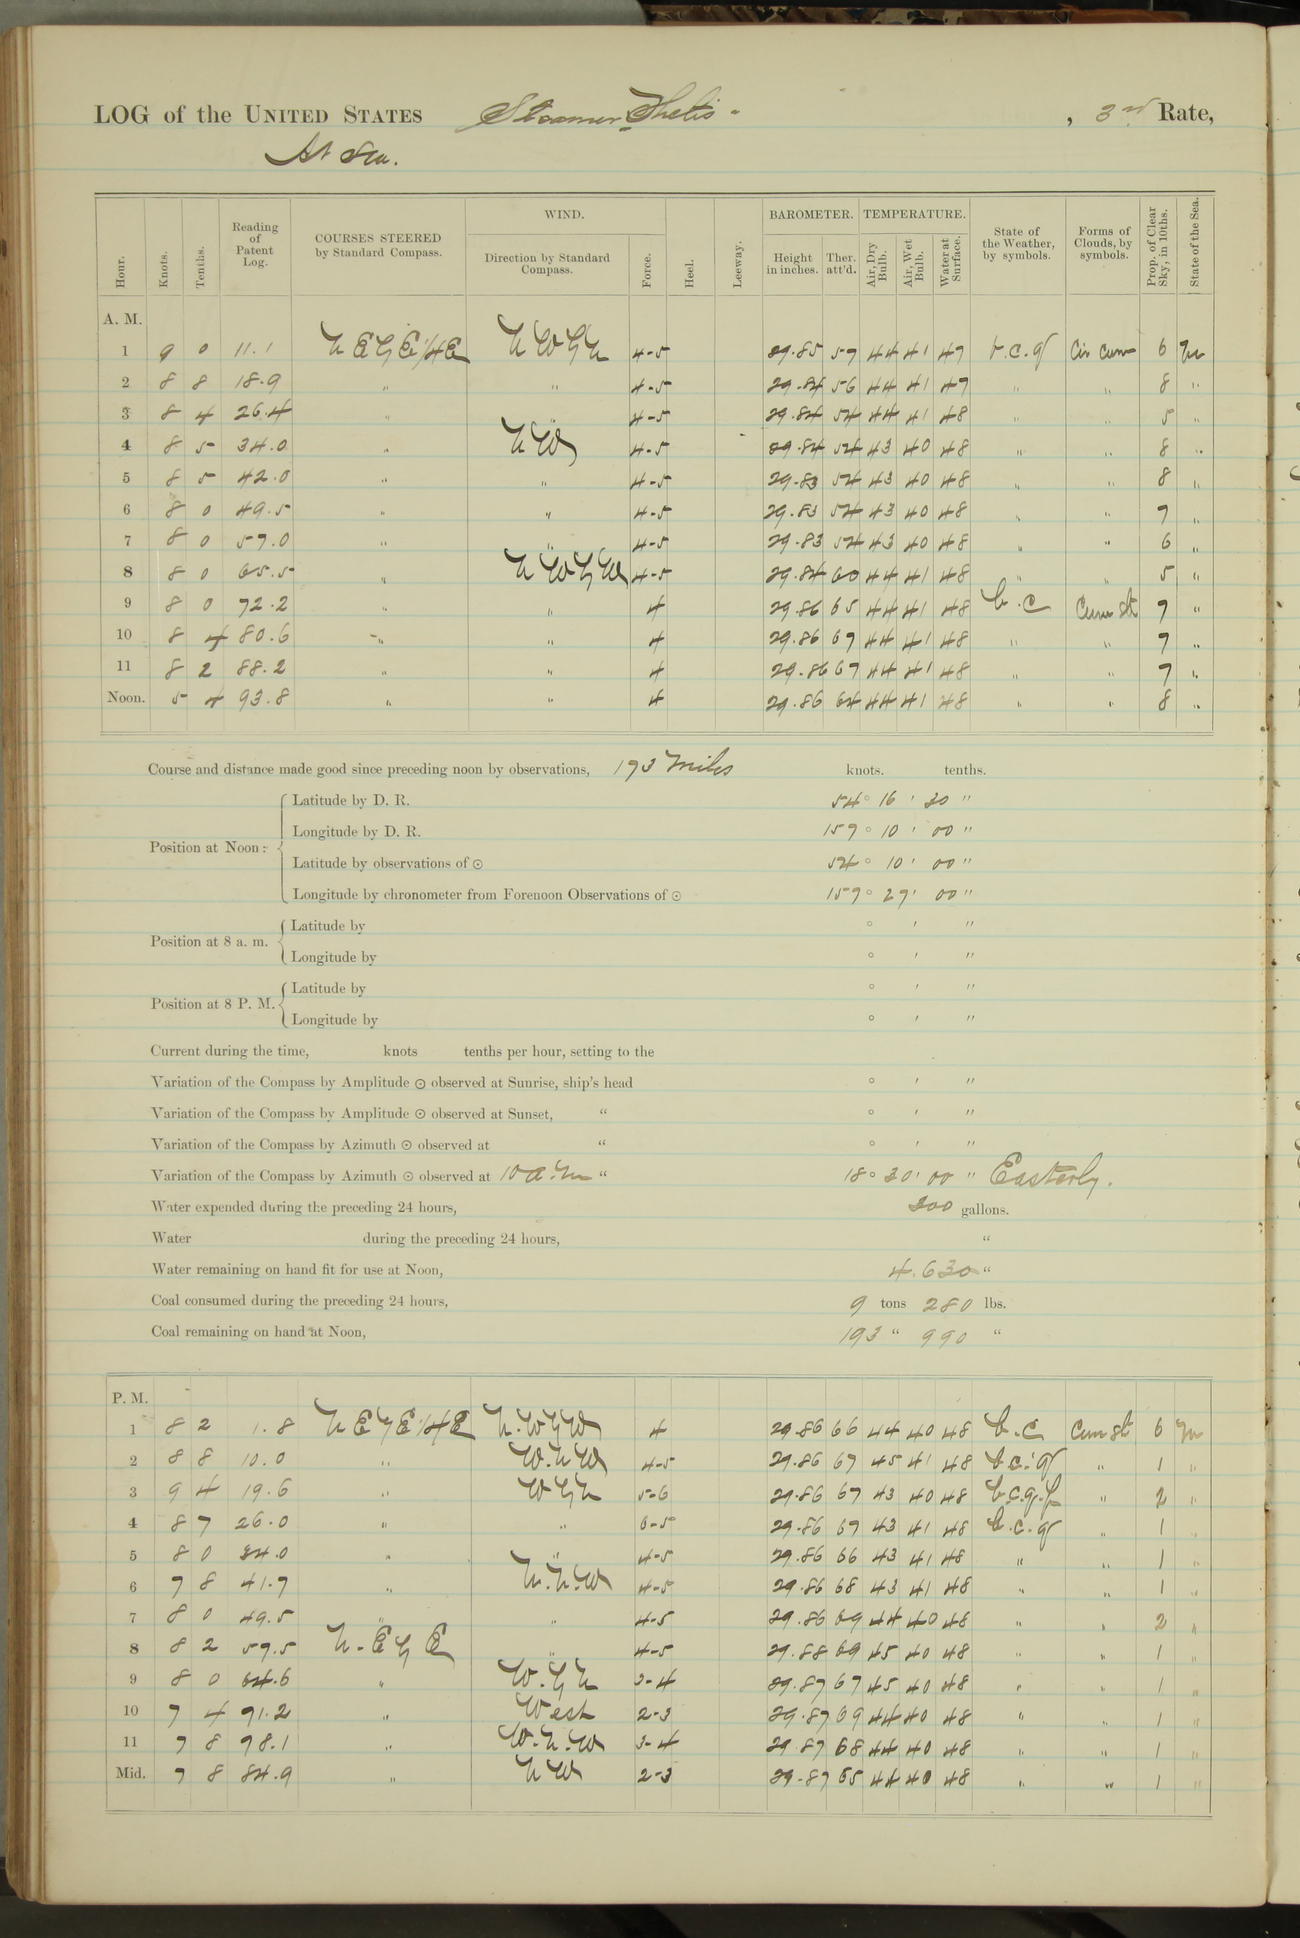 LOG of the UNITED STATES Steamer Thetis , 3rd Rate,
At Sea.
Hour. Knots. Tenths. Reading of Patent Log. COURSES STEERED by Standard Compass. WIND. Direction by Standard Compass. Force. Heel. Leeway. BAROMETER. Height in inches. Ther. att'd. TEMPERATURE. Air, Dry Bulb. Air, Wet Bulb. Water at Surface. State of the Weather, by symbols. Forms of Clouds, by symbols. Prop. of Clear Sky, in 10ths. State of the Sea.
A. M.
1 9 0 11.1 N E b E 1/4 E N W b N 4-5 29.85 57 44 41 47 b.c.q Cir cum 6 M
2 8 8 18.9 " 4-5 29.84 56 44 41 47 " " 8 "
3 8 4 26.4 " " 4-5 29.84 54 44 41 48 " " 5 "
4 8 5 34.0 " N W 4-5 29.84 54 43 40 48 " " 8 "
5 8 5 42.0 " " 4-5 29.83 54 43 40 48 " " 8 "
6 8 0 49.5 " " 4-5 29.83 54 43 40 48 " " 7 "
7 8 0 57.0 " " 4-5 29.83 54 43 40 48 " " 6 "
8 8 0 65.5 " N W b W 4-5 29.84 60 44 41 48 " " 5 "
9 8 0 72.2 " " 4 29.86 65 44 41 48 b.c Cum st 7 "
10 8 4 80.6 " " 4 29.86 67 44 41 48 " " 7 "
11 8 2 88.2 " " 4 29.86 67 44 41 48 " " 7 "
Noon. 5 4 93.8 " " 4 29.86 64 44 41 48 " " 8 "
Course and distance made good since preceding noon by observations, 193 Miles knots. tenths.
Position at Noon:
Latitude by D. R. 54° 16' 30"
Longitude by D. R. 159° 10' 00"
Latitude by observations of ⊙ 54° 10' 00"
Longitude by chronometer from Forenoon Observations of ⊙ 159° 27' 00"
Position at 8 a. m.
Latitude by ° ' "
Longitude by ° ' "
Position at 8 P. M.
Latitude by ° ' "
Longitude by ° ' "
Current during the time, knots tenths per hour, setting to the
Variation of the Compass by Amplitude ⊙ observed at Sunrise, ship's head ° ' "
Variation of the Compass by Amplitude ⊙ observed at Sunset, " ° ' "
Variation of the Compass by Azimuth ⊙ observed at " ° ' "
Variation of the Compass by Azimuth ⊙ observed at 10 a.m " 18° 30' 00" Easterly.
Water expended during the preceding 24 hours, 300 gallons.
Water during the preceding 24 hours, "
Water remaining on hand fit for use at Noon, 4.630 "
Coal consumed during the preceding 24 hours, 9 tons 280 lbs.
Coal remaining on hand at Noon, 193 " 990 "
P. M.
1 8 2 1.8 N E b E 1/4 E N.W b W 4 29.86 66 44 40 48 b.c Cum st 6 M
2 8 8 10.0 " W.N.W 4-5 29.86 67 45 41 48 b.c.q " 1 "
3 9 4 19.6 " W b N 5-6 29.86 67 43 40 48 b.c.q.p " 2 "
4 8 7 26.0 " " 6-5 29.86 67 43 41 48 b.c.q " 1 "
5 8 0 34.0 " " 4-5 29.86 66 43 41 48 " " 1 "
6 7 8 41.7 " N.N.W 4-5 29.86 68 43 41 48 " " 1 "
7 8 0 49.5 " " 4-5 29.86 69 44 40 48 " " 2 "
8 8 2 57.5 N.E b E " 4-5 29.88 69 45 40 48 " " 1 "
9 8 0 64.6 " W.b N 3-4 29.87 67 45 40 48 " " 1 "
10 7 4 71.2 " West 2-3 29.87 69 44 40 48 " " 1 "
11 7 8 78.1 " W.N.W 3-4 29.87 68 44 40 48 " " 1 "
Mid. 7 8 84.9 " N W 2-3 29.87 65 44 40 48 " " 1 "